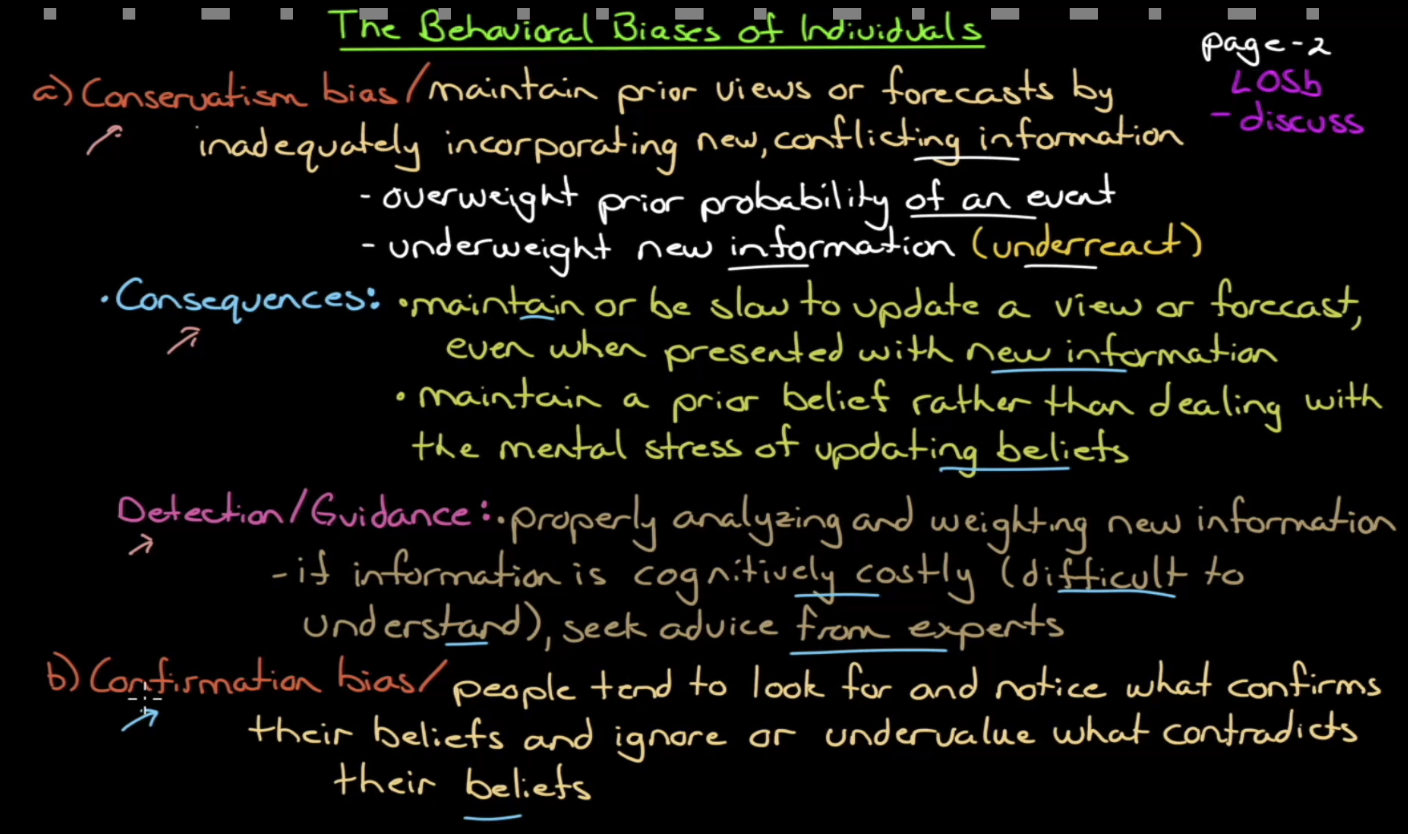 The Behavioral Biases of Individuals
page-2
LOSb
- discuss
a) Conservatism bias/maintain prior views or forecasts by
inadequately incorporating new, conflicting information
- overweight prior probability of an event
- underweight new information (underreact)
• Consequences: • maintain or be slow to update a view or forecast,
even when presented with new information
• maintain a prior belief rather than dealing with
the mental stress of updating beliefs
Detection/Guidance: • properly analyzing and weighting new information
- if information is cognitively costly (difficult to
understand), seek advice from experts
b) Confirmation bias/people tend to look for and notice what confirms
their beliefs and ignore or undervalue what contradicts
their beliefs